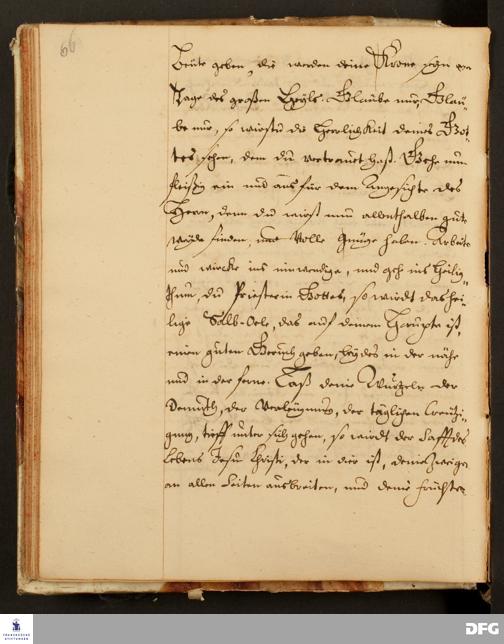 66
Beute geben, die werden deine Krone seyn am
Tage des großen Heyls. Glaube nur, Glau„
be nur, so wirstu die Herrlichkeit deines Got„
tes sehen, dem du vertrauet hast. Gehe nun
fleißig ein und aus für dem Angesichte des
Herrn, denn du wirst nun allenthalben gute
weyde finden, und volle gnüge haben. Arbeite
und wircke ins inwendige, und geh ins Heilig„
thum, du Priesterin Gottes, so wirdt das hei„
lige Salb-Oele, das auf deinem Haupte ist,
einen guten Geruch geben, beydes in der nähe
und in der ferne. Laß deine Wurtzeln der
Demuth, der Verleugnung, der täglichen Creutzi„
gung, tieff unter sich gehen, so wirdt der Safft des
Lebens Jesu Christi, der in dir ist, deine Zweige
an allen Seiten ausbreiten, und deine früchte
FRANCKESCHE
STIFTUNGEN
DFG